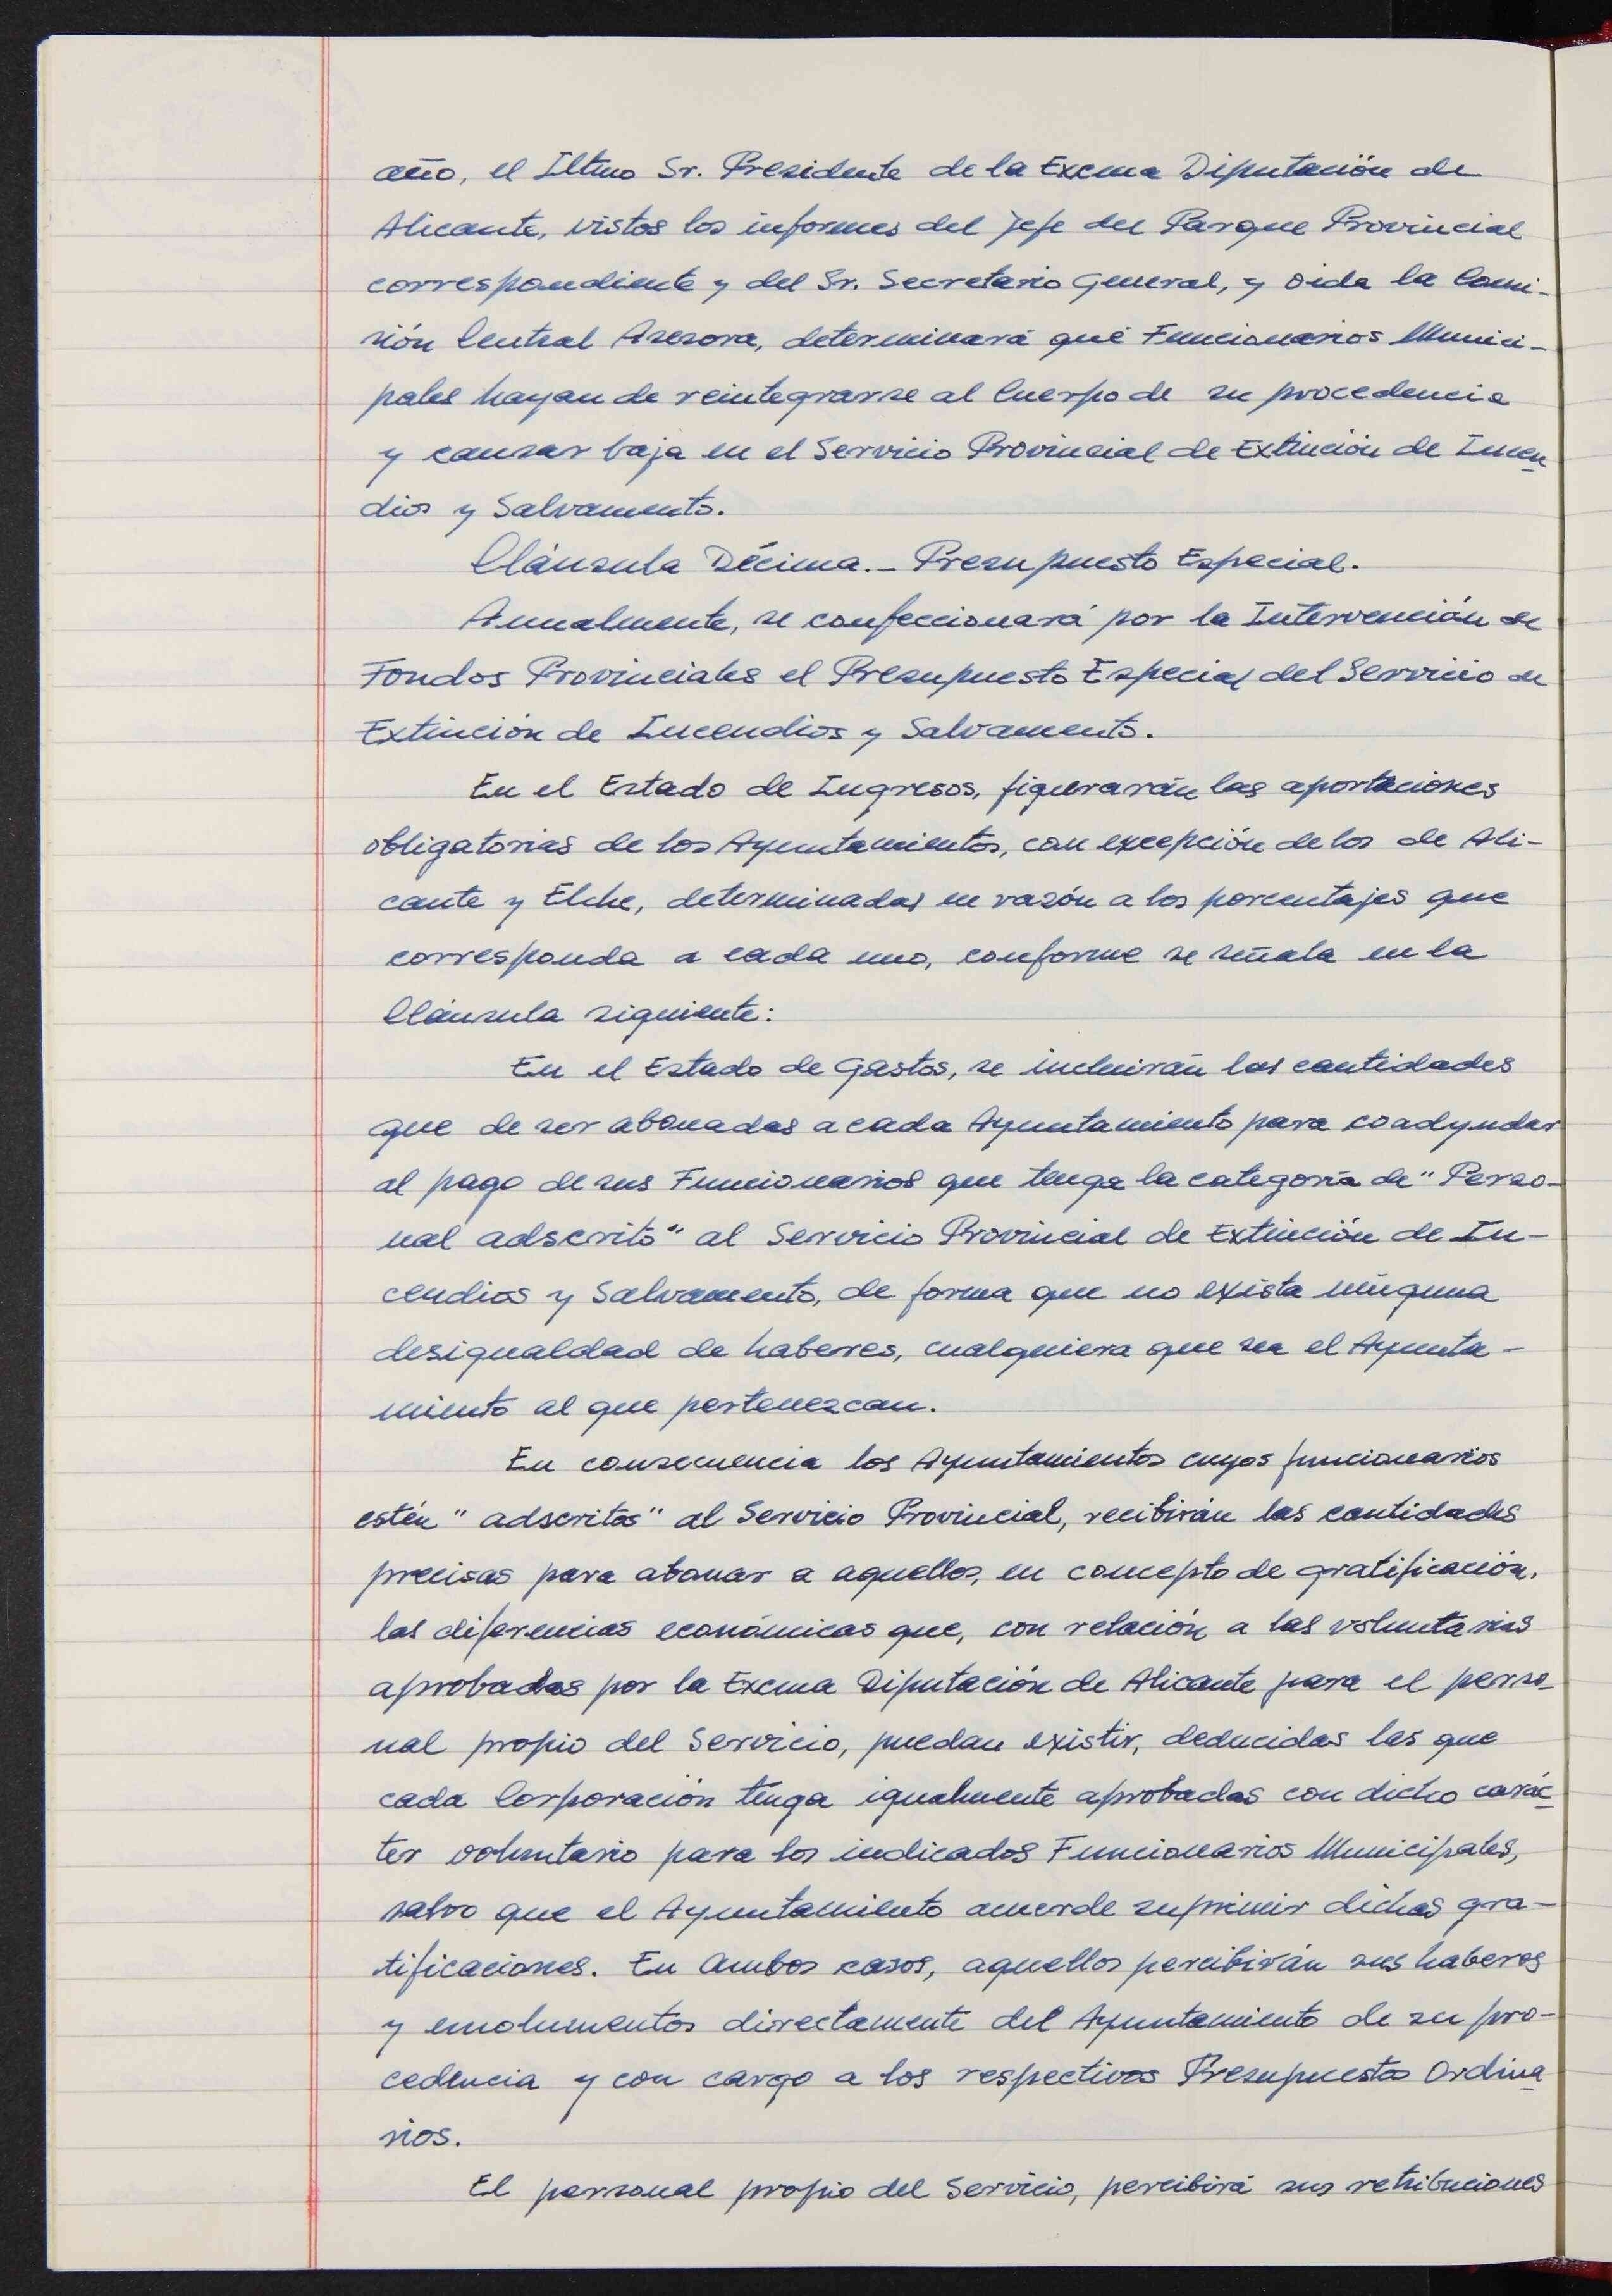 año, el Iltmo Sr. Presidente de la Excma Diputación de
Alicante, vistos los informes del Jefe del Parque Provincial
correspondiente y del Sr. Secretario General, y oída la Comi-
sión Central Asesora, determinará qué Funcionarios Munici-
pales hayan de reintegrarse al Cuerpo de su procedencia
y causar baja en el Servicio Provincial de Extinción de Incen
dios y Salvamento.
Cláusula Décima.- Presupuesto Especial.
Anualmente, se confeccionará por la Intervención de
Fondos Provinciales el Presupuesto Especial del Servicio de
Extinción de Incendios y Salvamento.
En el Estado de Ingresos, figurarán las aportaciones
obligatorias de los Ayuntamientos, con excepción de los de Ali-
cante y Elche, determinadas en razón a los porcentajes que
corresponda a cada uno, conforme se señala en la
Cláusula siguiente:
En el Estado de Gastos, se incluirán las cantidades
que de ser abonadas a cada Ayuntamiento para coadyudar
al pago de sus Funcionarios que tenga la categoría de "Perso-
nal adscrito" al Servicio Provincial de Extinción de In-
cendios y Salvamento, de forma que no exista ninguna
desigualdad de haberes, cualquiera que sea el Ayunta-
miento al que pertenezcan.
En consecuencia los Ayuntamientos cuyos funcionarios
estén "adscritos" al Servicio Provincial, recibirán las cantidades
precisas para abonar a aquellos, en concepto de gratificación,
las diferencias económicas que, con relación a las voluntarias
aprobadas por la Excma Diputación de Alicante para el perso-
nal propio del Servicio, puedan existir, deducidas las que
cada Corporación tenga igualmente aprobadas con dicho carác
ter voluntario para los indicados Funcionarios Municipales,
salvo que el Ayuntamiento acuerde suprimir dichas gra-
tificaciones. En Ambos casos, aquellos percibirán sus haberes
y emolumentos directamente del Ayuntamiento de su pro-
cedencia y con cargo a los respectivos Presupuestos Ordina
rios.
El personal propio del Servicio, percibirá sus retribuciones